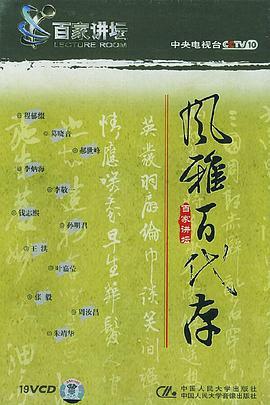 百家讲坛
LECTURE ROOM
中央电视台 CCTV10
风雅百代存
百家讲坛
程郁缀
葛晓音
郝世峰
李炳海
李敬一
钱志熙
孙明君
王洪
叶嘉莹
张毅
周汝昌
朱靖华
英发羽扇纶巾谈笑间
情应笑我早生华发
19VCD
中国人民大学出版社
中国人民大学音像出版社